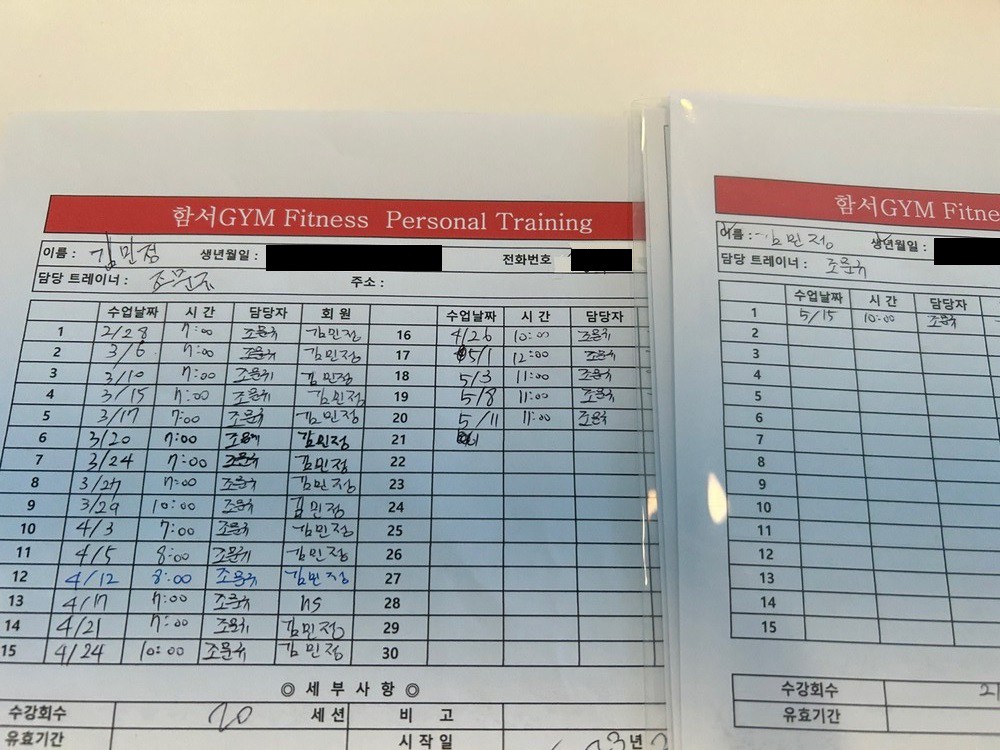 함서GYM Fitness Personal Training
이름 : 김민정 생년월일 : 전화번호
담당 트레이너 : 주소 :
수업날짜 시간 담당자 회원 수업날짜 시간 담당자
1 2/28 7:00 김민정 16 4/26 10:00
2 3/6 7:00 김민정 17 5/1 12:00
3 3/10 7:00 김민정 18 5/3 11:00
4 3/15 7:00 김민정 19 5/8 11:00
5 3/17 7:00 김민정 20 5/11 11:00
6 3/20 7:00 김민정 21
7 3/24 7:00 김민정 22
8 3/27 7:00 김민정 23
9 3/29 10:00 김민정 24
10 4/3 7:00 김민정 25
11 4/5 8:00 김민정 26
12 4/12 8:00 김민정 27
13 4/17 7:00 ns 28
14 4/21 7:00 김민정 29
15 4/24 10:00 김민정 30
◎ 세부사항 ◎
수강회수 20 세션 비고
유효기간 시작일 23년 2
함서GYM Fitne
이름 : 김민정 생년월일 :
담당 트레이너 :
수업날짜 시간 담당자
1 5/15 10:00
2
3
4
5
6
7
8
9
10
11
12
13
14
15
수강회수 21
유효기간